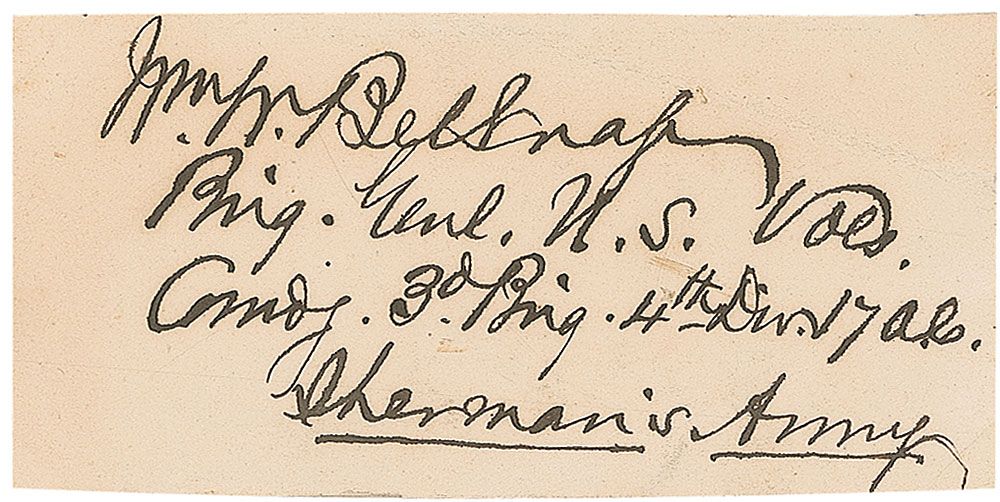 Wm. W. Belknap
Brig. Genl. U. S. Vols.
Comdg. 3d Brig. 4th Div. 17 A.C.
Sherman's Army